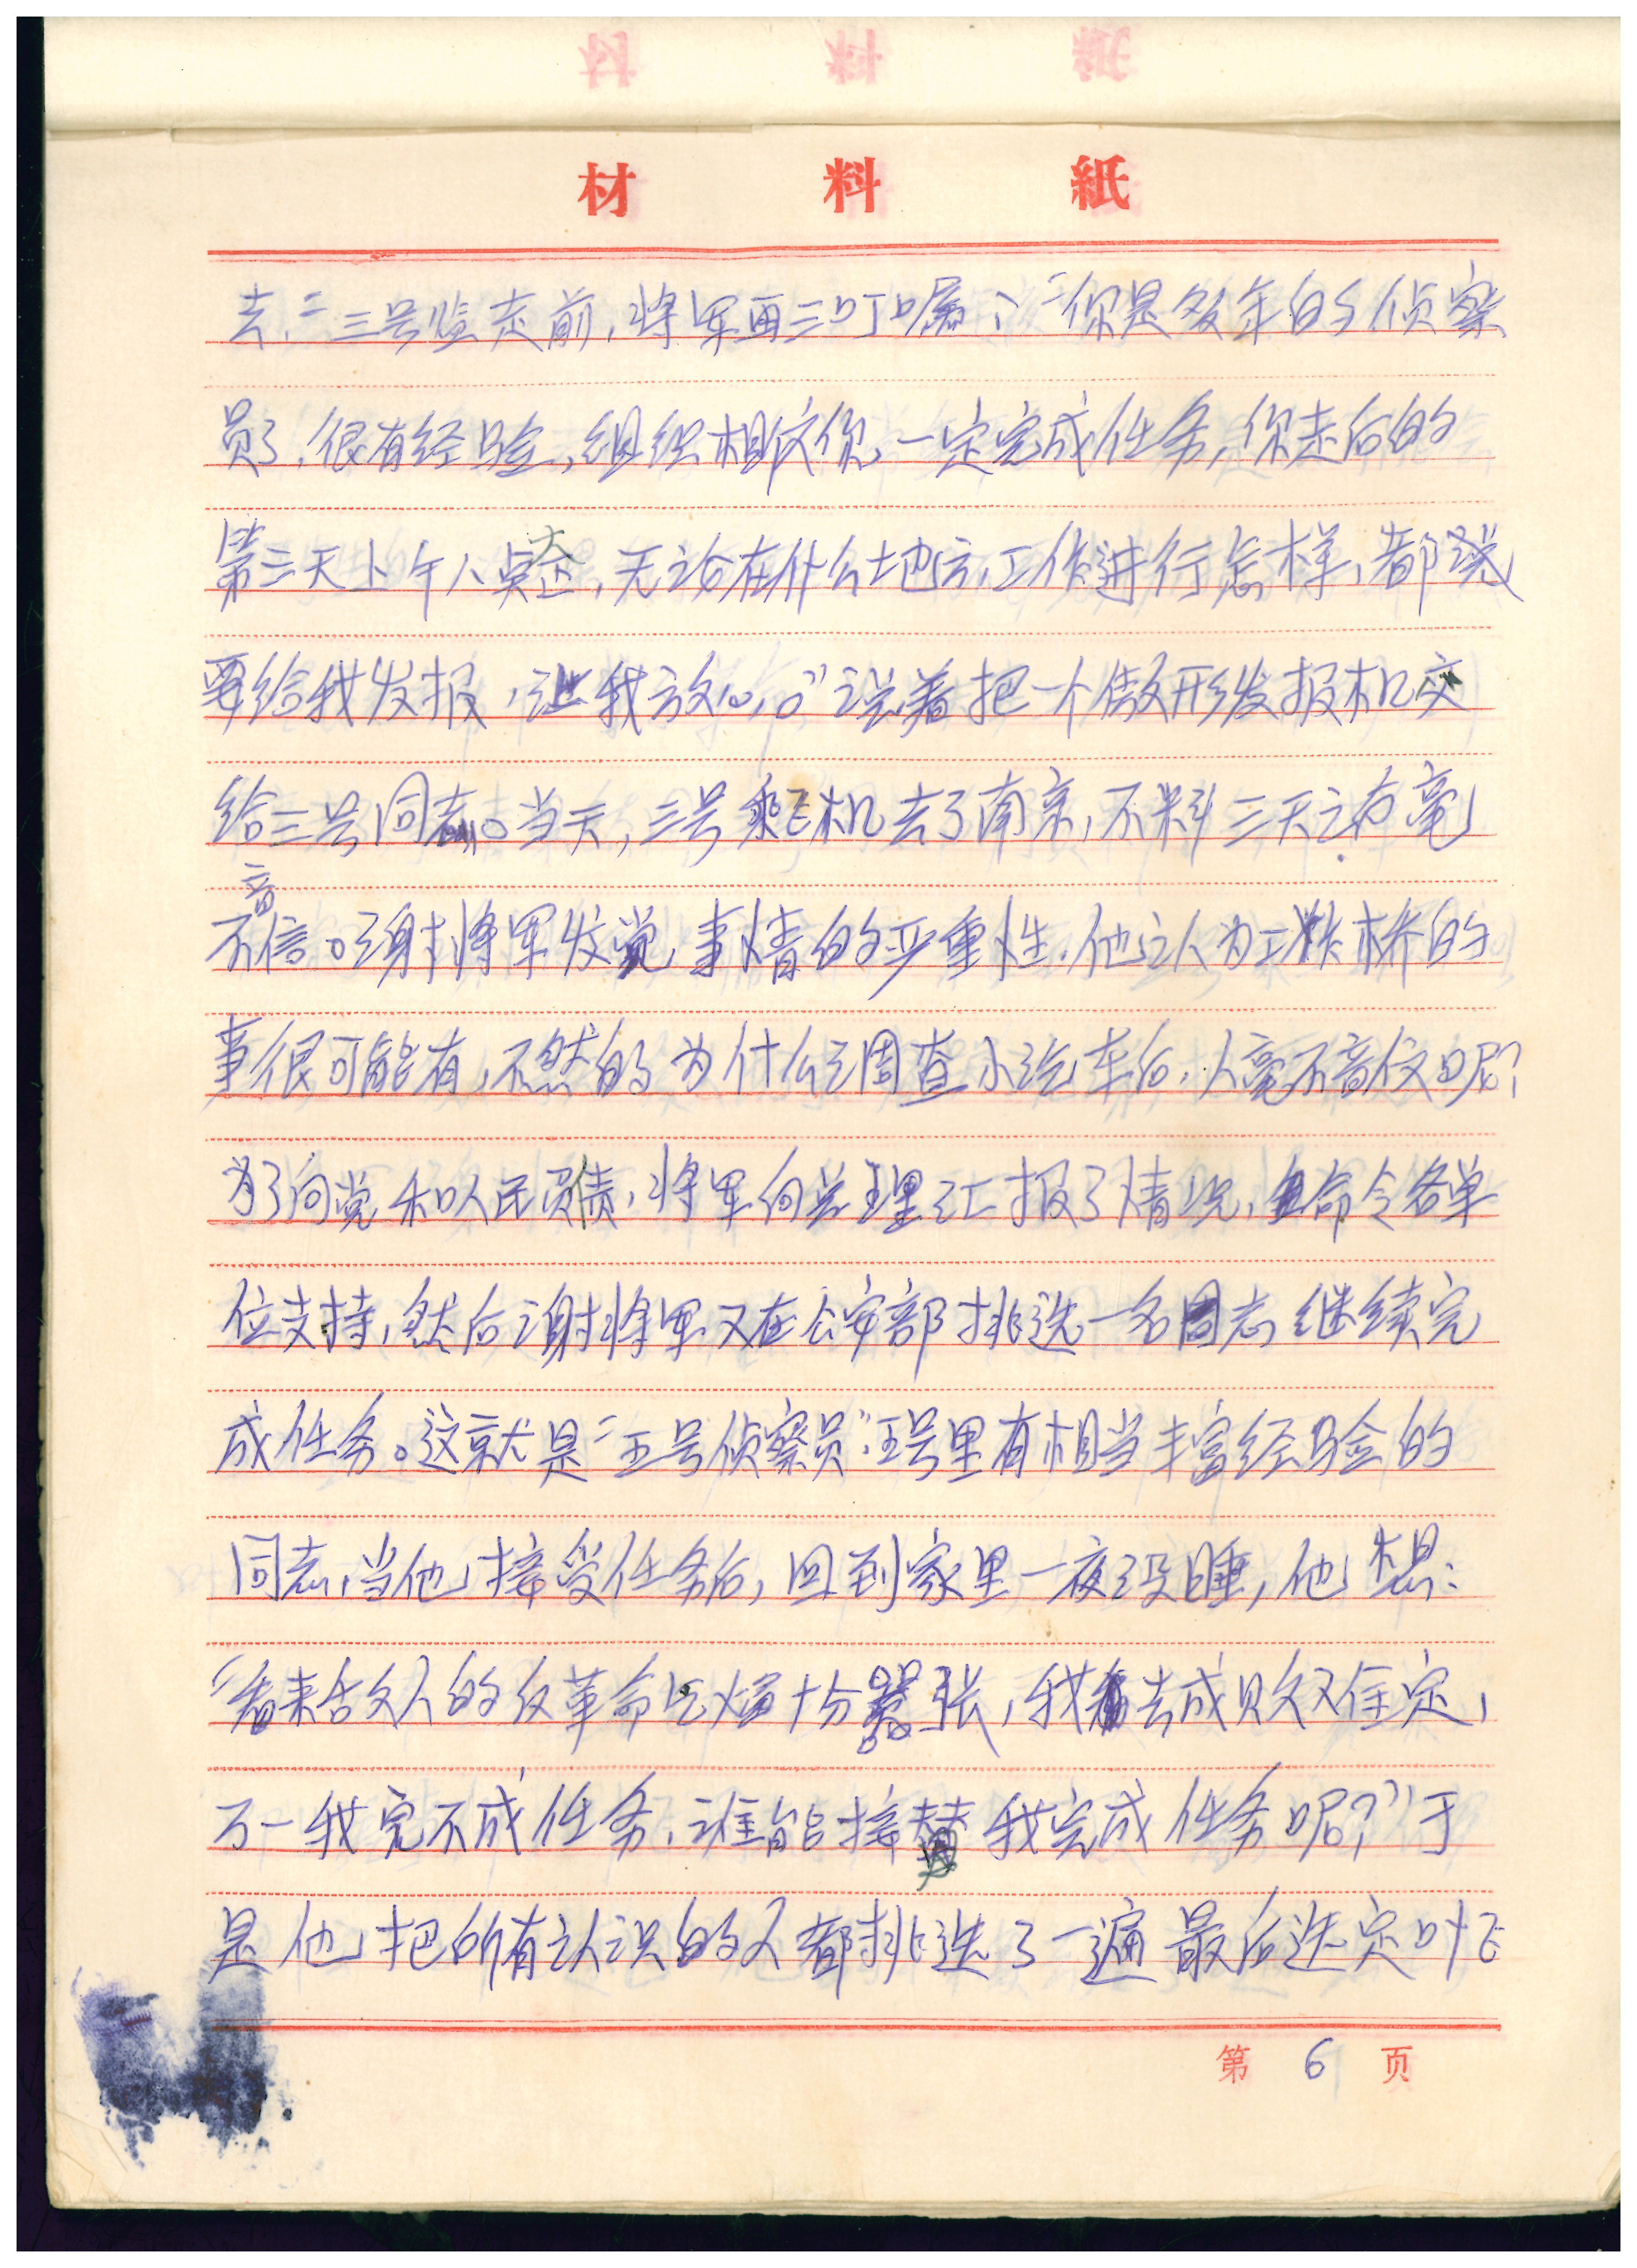 材料紙
去,"三号临走前,将军再三叮嘱:"你是多年的侦察
员了,很有经验,组织相信你,一定完成任务,你走后的
第三天上午八点正,无论在什么地方,工作进行怎样,都
要给我发报,让我放心。"说着把一个微形发报机交
给三号同志。当天,三号乘飞机去了南京,不料三天之后毫
不音信。谢将军发觉事情的严重性,他认为大桥的
事很可能有,不然的为什么调查小汽车后,人毫不音信呢?
为了向党和人民负责,将军向总理汇报了情况,命令各单
位支持,然后谢将军又在公安部挑选一名同志继续完
成任务。这就是"五号侦察员",五号里有相当丰富经验的
同志,当他接受任务后,回到家里一夜没睡,他想:
"看来敌人的反革命气焰十分嚣张,我去成败不定,
万一我完不成任务,谁能接替我完成任务呢?"于
是他把所有认识的人都挑选了一遍最后选定叶飞
第6页